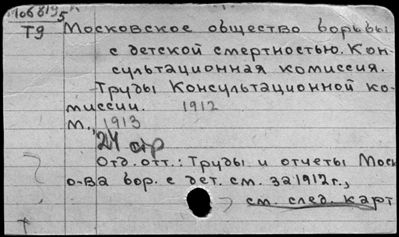 Т9
Московское общество борьбы
с детской смертностью. Кон-
сультационная комиссия.
Труды Консультационной ко-
миссии. 1912
М., 1913
24 стр
Отд. отт.: Труды и отчеты Моск
о-ва бор. с дет. см. за 1912 г.,
см. след. карт